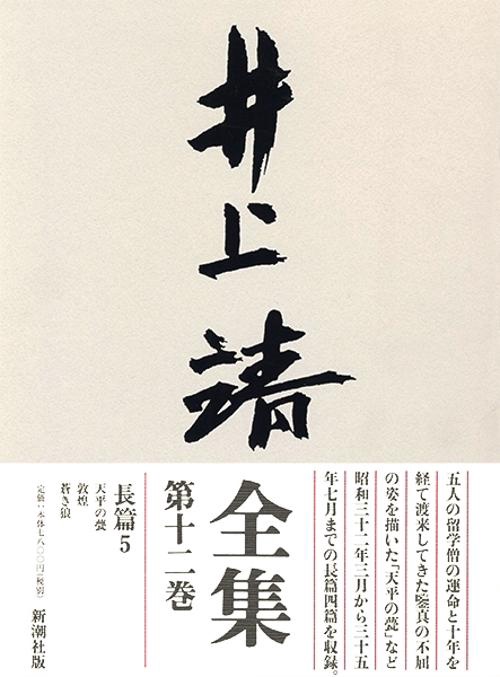 井上靖
五人の留学僧の運命と十年を
経て渡来してきた鑒真の不屈
の姿を描いた「天平の甍」など
昭和三十二年三月から三十五
年七月までの長篇四篇を収録。
全集
第十二巻
長篇5
天平の甍
敦煌
蒼き狼
定価:本体七八〇〇円(税別)
新潮社版